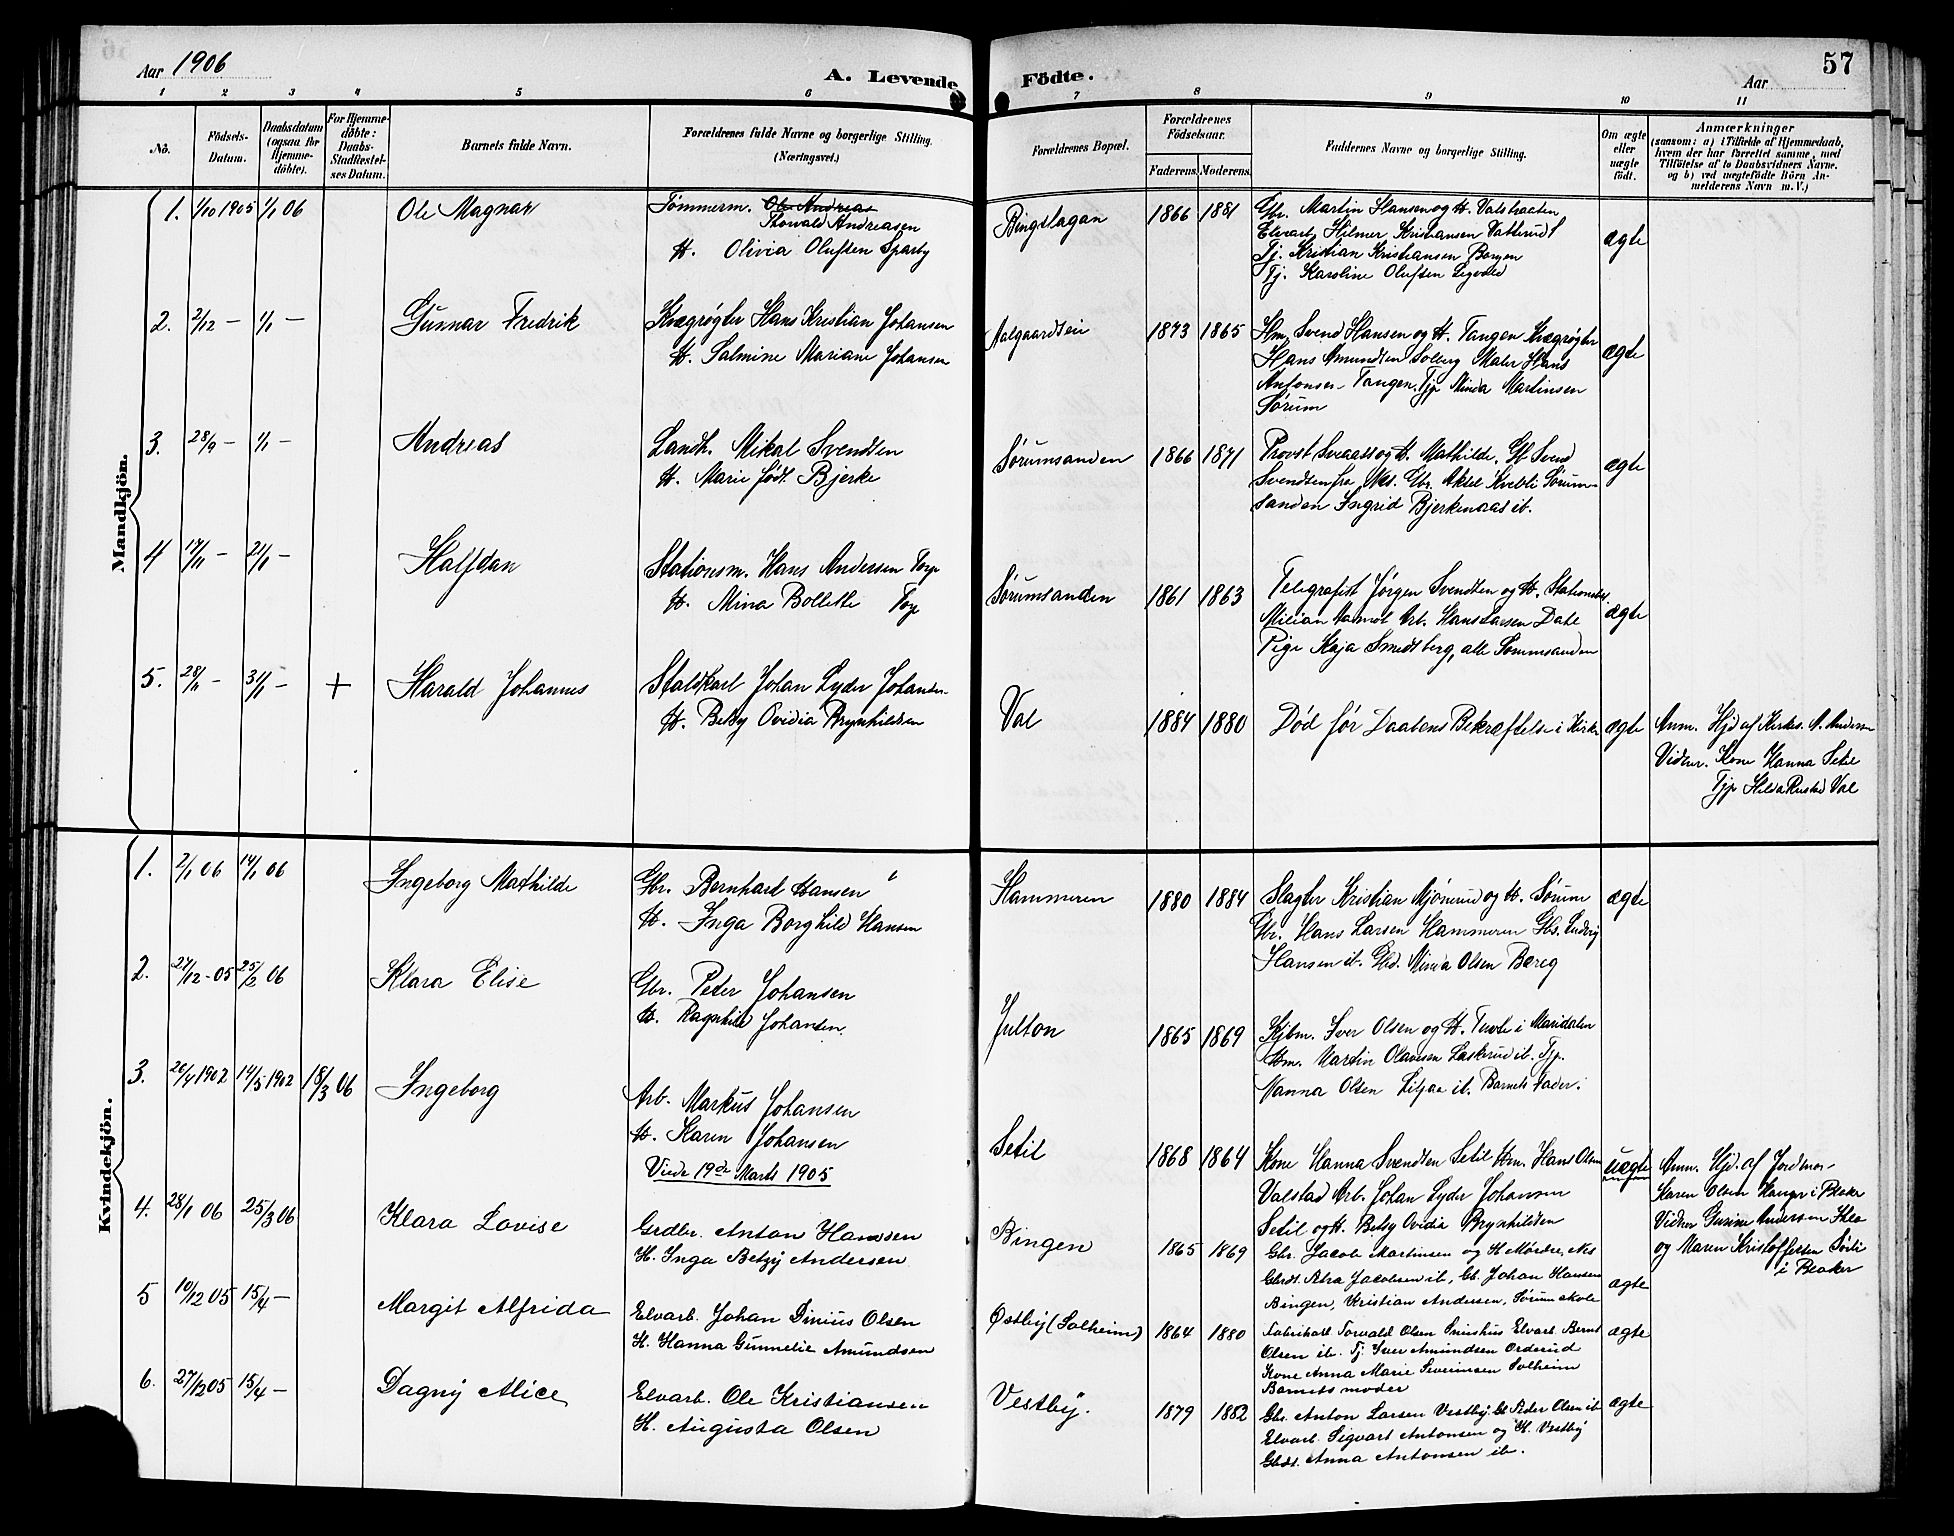 Aar 1906
A. Levende
Födte.
Aar
57
1 2 3 4 5 6 7 8 9 10 11
No.
Födsels-
Datum.
Daabsdatum
(ogsaa for
Hjemme-
döbte).
For Hjemme-
döbte:
Daabs-
Stadfæstel-
ses Datum.
Barnets fulde Navn.
Forældrenes fulde Navne og borgerlige Stilling.
(Næringsvei.)
Forældrenes Bopæl.
Forældrenes
Födselsaar.
Faderens. Moderens.
Faddernes Navne og borgerlige Stilling.
Om ægte
eller
uægte
födt.
Anmærkninger
(saasom: a) i Tilfælde af Hjemmedaab,
hvem der har forrettet samme, med
Tilföielse af to Daabsvidners Navne.
og b) ved uægtefödte Börn An-
melderens Navn m. V.)
Mandkjön.
1. 1/10 1905 1/1 06 Ole Magnar
Tömmerm. Ole Andreas
Thorvald Andreasen
H. Olivia Olufsen Sparby
Bingslagan 1866 1881
Gbr. Martin Hansen og H. Valstraaten
Elvearb. Hilmer Kristiansen Vatterud
Tj. Kristian Kristiansen Borgen
Tj. Karoline Olufsen
ægte
2. 2/12 – 1/1 – Gunnar Fredrik
Kvægrøgter Hans Kristian Johansen
H. Salmine Mariane Johansen
Aalgaardseie 1873 1865
Hm. Svend Hansen og H. Tangen Kvægrøgter
Hans Amundsen Solberg Maler Hans
Antonsen Tangen. Tjp Minda Martinsen
Sørum
ægte
3. 28/9 – 1/1 – Andreas
Landh. Mikal Svendsen
H. Marie født Bjerke
Sørumsanden 1866 1871
Provst Sveaas og H. Mathilde. Gb Svend
Svendsen fra Nes. Gbr. Aksel Kvebli Sørum-
sanden Ingrid Bjerkenaas ib.
ægte
4 17/11 – 21/1 – Halfdan
Stationsm. Hans Andersen Torp
H. Mina Bollette Torp
Sørumsanden 1861 1863
Telegrafist Jørgen Svendsen og H. Stationsbet.
Milian Aamot Arb. Hans Larsen Dahl
Pige Kaja Smedsberg, alle Sørumsanden
ægte
5. 28/11 – 31/1 – + Harald Johannes
Staldkarl Johan Lyder Johansen
H. Betsy Ovidia Brynhildsen
Val 1884 1880
Død før Daabens Bekræftelse i Kirke
ægte
Anm. Hjd af Kirkes. A. Andersen
Vidner. Kone Hanna Setil
Tjp Hilda Rustad Val
Kvindekjön.
1. 2/1 06 14/1 06 Ingeborg Mathilde
Gbr. Bernhard Hansen
H. Inga Borghild Hansen
Hammeren 1880 1884
Slagter Kristian Mjønerud og H. Sørum
Gbr. Hans Larsen Hammeren Gbs. Ludvig
Hansen ib. Gbd. Minda Olsen Bæreg
ægte
2. 27/12 – 05 25/2 06 Klara Elise
Gbr. Peter Johansen
H. Ragnhild Johansen
Julton 1865 1869
Kjbm. Iver Olsen og H. Tuvle i Maridalen
Hm. Martin Olavesen ib. Tjp.
Nanna Olsen ib. Barnets Fader.
3. 26/4 1902 14/5 1902 18/3 06 Ingeborg
Arb. Markus Johansen
H. Karen Johansen
Viede 19de Marts 1905
Setil 1868 1864
Kone Hanna Svendsen Setil Hm. Hans Olsen
Valstad Arb. Johan Lyder Johansen
Setil og H. Betsy Ovidia Brynhildsen
uægte
Anm. Hjd. af Jordmor
Karen Olsen Hanger i Blaker
Vidner Gusine Andersen
og Maren Kristoffersen Sørli
i Blaker
4. 28/1 06 25/3 06 Klara Lovise
Grdbr. Anton Hansen
H. Inga Betzy Andersen
Bingen 1865 1869
Gbr. Jacob Martinsen og H Mørdre, Nes
Gbrdt. Alra Jacobsen ib, Gb. Johan Hansen
Bingen, Kristian Andersen, Sørum skole
ægte
5 10/12 05 15/4 – Margit Alfrida
Elvarb. Johan Dinius Olsen
H. Hanna Gunnelie Amundsen
Østby (Solheim) 1864 1880
Fabrikarb Torvald Olsen Snushus Elvarb. Bernt
Olsen ib. Tj. Iver Amundsen Orderud
Kone Anna Marie Severinsen Solheim
Barnets moder
ægte
6. 27/12 05 15/4 – Dagny Alice
Elvarb. Ole Kristiansen
H. Augusta Olsen
Vestby. 1879 1882
Gbr. Anton Larsen Vestby. Gb Peder Olsen ib
Elvarb. Sigvart Antonsen og H. Vestby
Gbdt. Anna Antonsen ib.
ægte